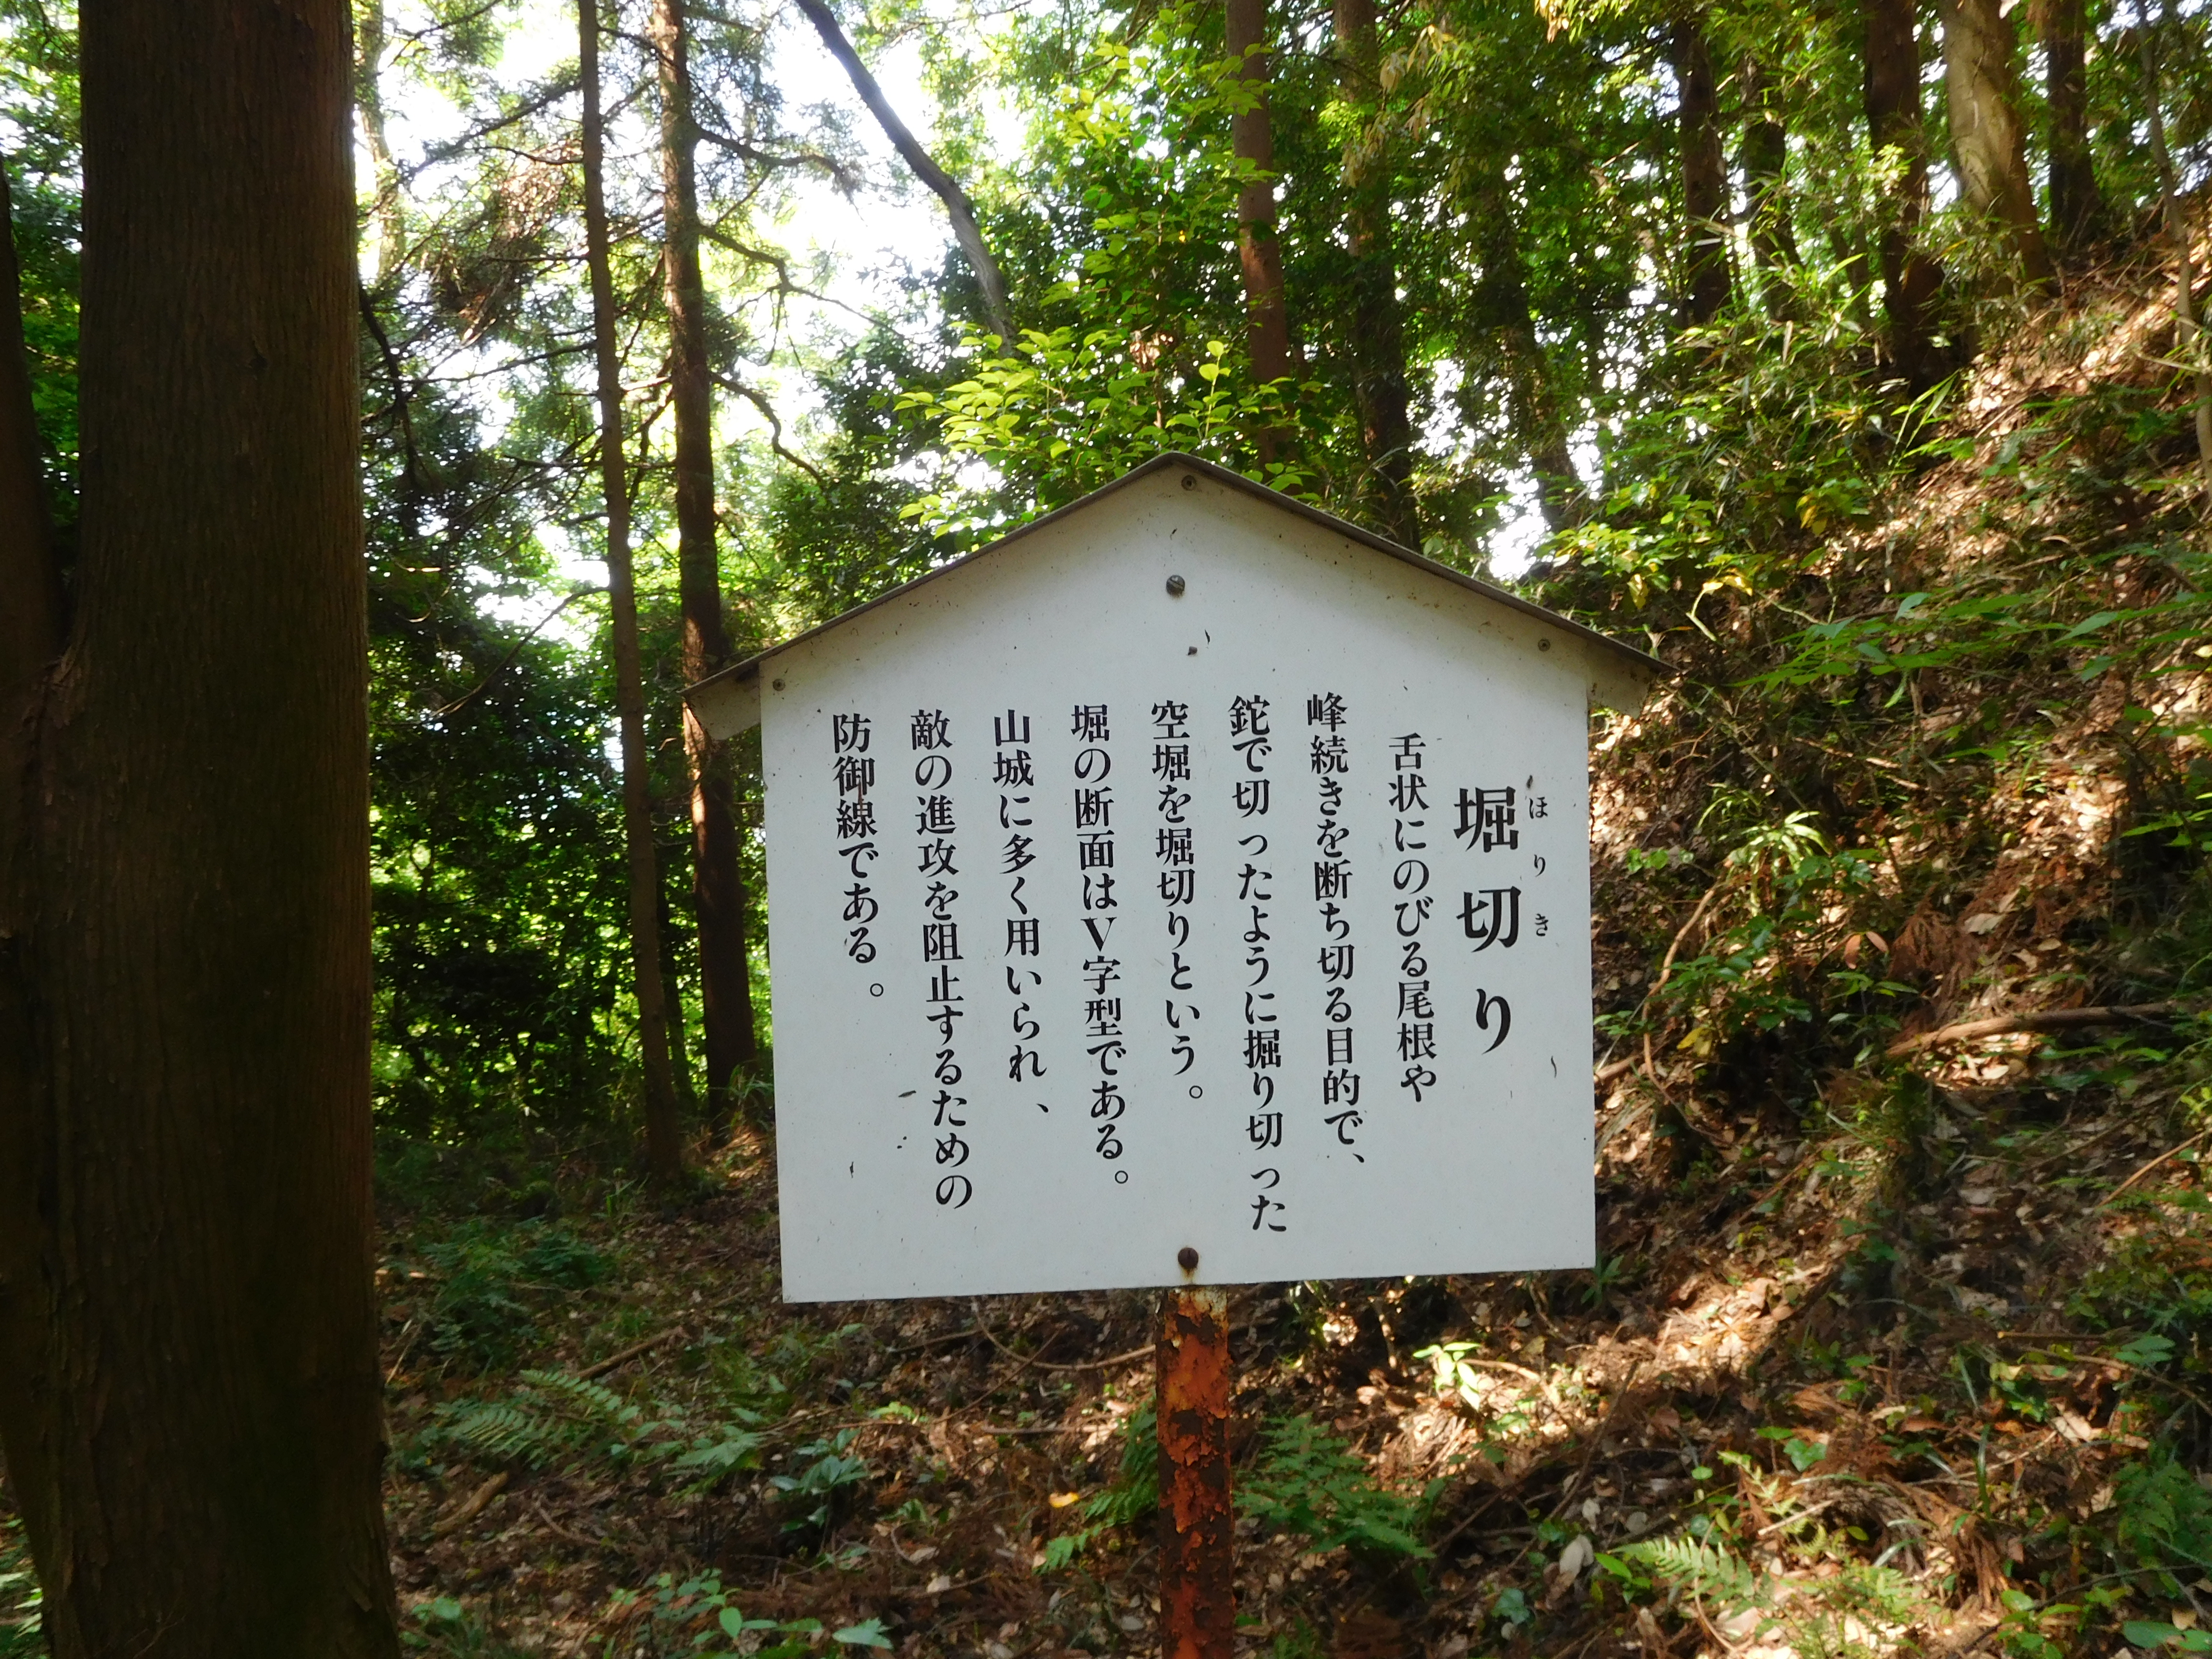 堀切り
ほりき
舌状にのびる尾根や
峰続きを断ち切る目的で、
鉈で切ったように掘り切った
空堀を堀切りという。
堀の断面はV字型である。
山城に多く用いられ、
敵の進攻を阻止するための
防御線である。